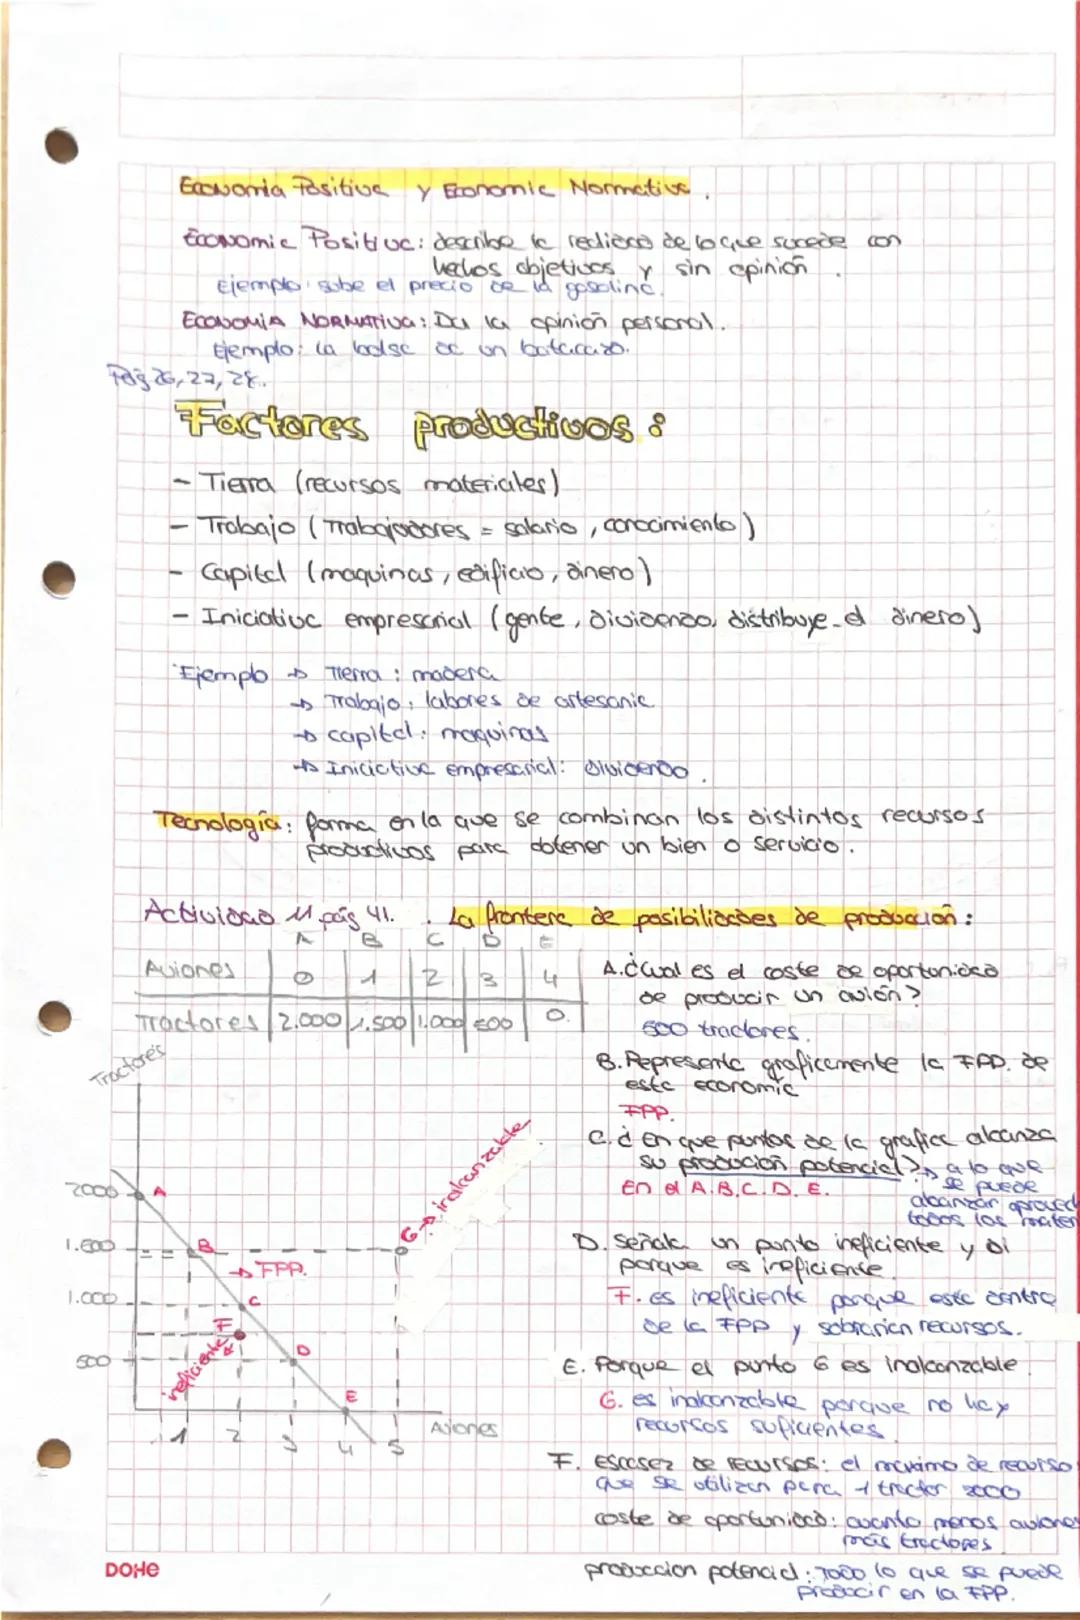 Economía Positiva y Economía Normativa.
Economía Positiva: describe la realidad de lo que sucede con
hechos objetivos y sin opinión.
Ejemplo: sube el precio de la gasolina.
ECONOMIA NORMATIVA: Da la opinión personal.
Ejemplo: la bolsa da un batacazo.
Pág 26, 27, 28.
Factores productivos:
- Tierra (recursos materiales)
- Trabajo (Trabajadores = salario, conocimiento)
- Capital (maquinas, edificio, dinero)
- Iniciativa empresarial (gente, dividendo, distribuye el dinero)
Ejemplo → Tierra: madera
→ Trabajo: labores de artesania
→ capital: maquinas
→ Iniciativa empresarial: dividendo.
Tecnología: forma en la que se combinan los distintos recursos
productivos para obtener un bien o servicio.
Actividad 11 pág 41. La frontera de posibilidades de producción:
A B C D E
Aviones 0 1 2 3 4
Tractores 2.000 1.500 1.000 500 0.
A. ¿Cual es el coste de oportunidad
de producir un avión?
500 tractores.
B. Representa graficamente la FPP. de
esta economia
FPP.
C. ¿En que puntos de la grafica alcanza
su producion potencial? → a lo que
se puede
alcanzar aproved
todos los mater
En el A.B.C.D.E.
D. Señala un punto ineficiente y di
porque es ineficiente.
F. es ineficiente porque esta dentro
de la FPP y sobrarian recursos.
E. Porque el punto G es inalcanzable
G. es inalcanzable porque no hay
recursos suficientes.
F. escasez de recursos: el maximo de recurso
que se utilizan para 1 tractor 2000
coste de oportunidad: cuanto menos aviones
más tractores
produccion potencial: Todo lo que se puede
producir en la FPP.
Tractores
2000 A
1.500 B
→ FPP.
G → inalcanzable
1.000 C
F
ineficiente
500 D
E
1 2 3 4 5
Aviones
DOHE